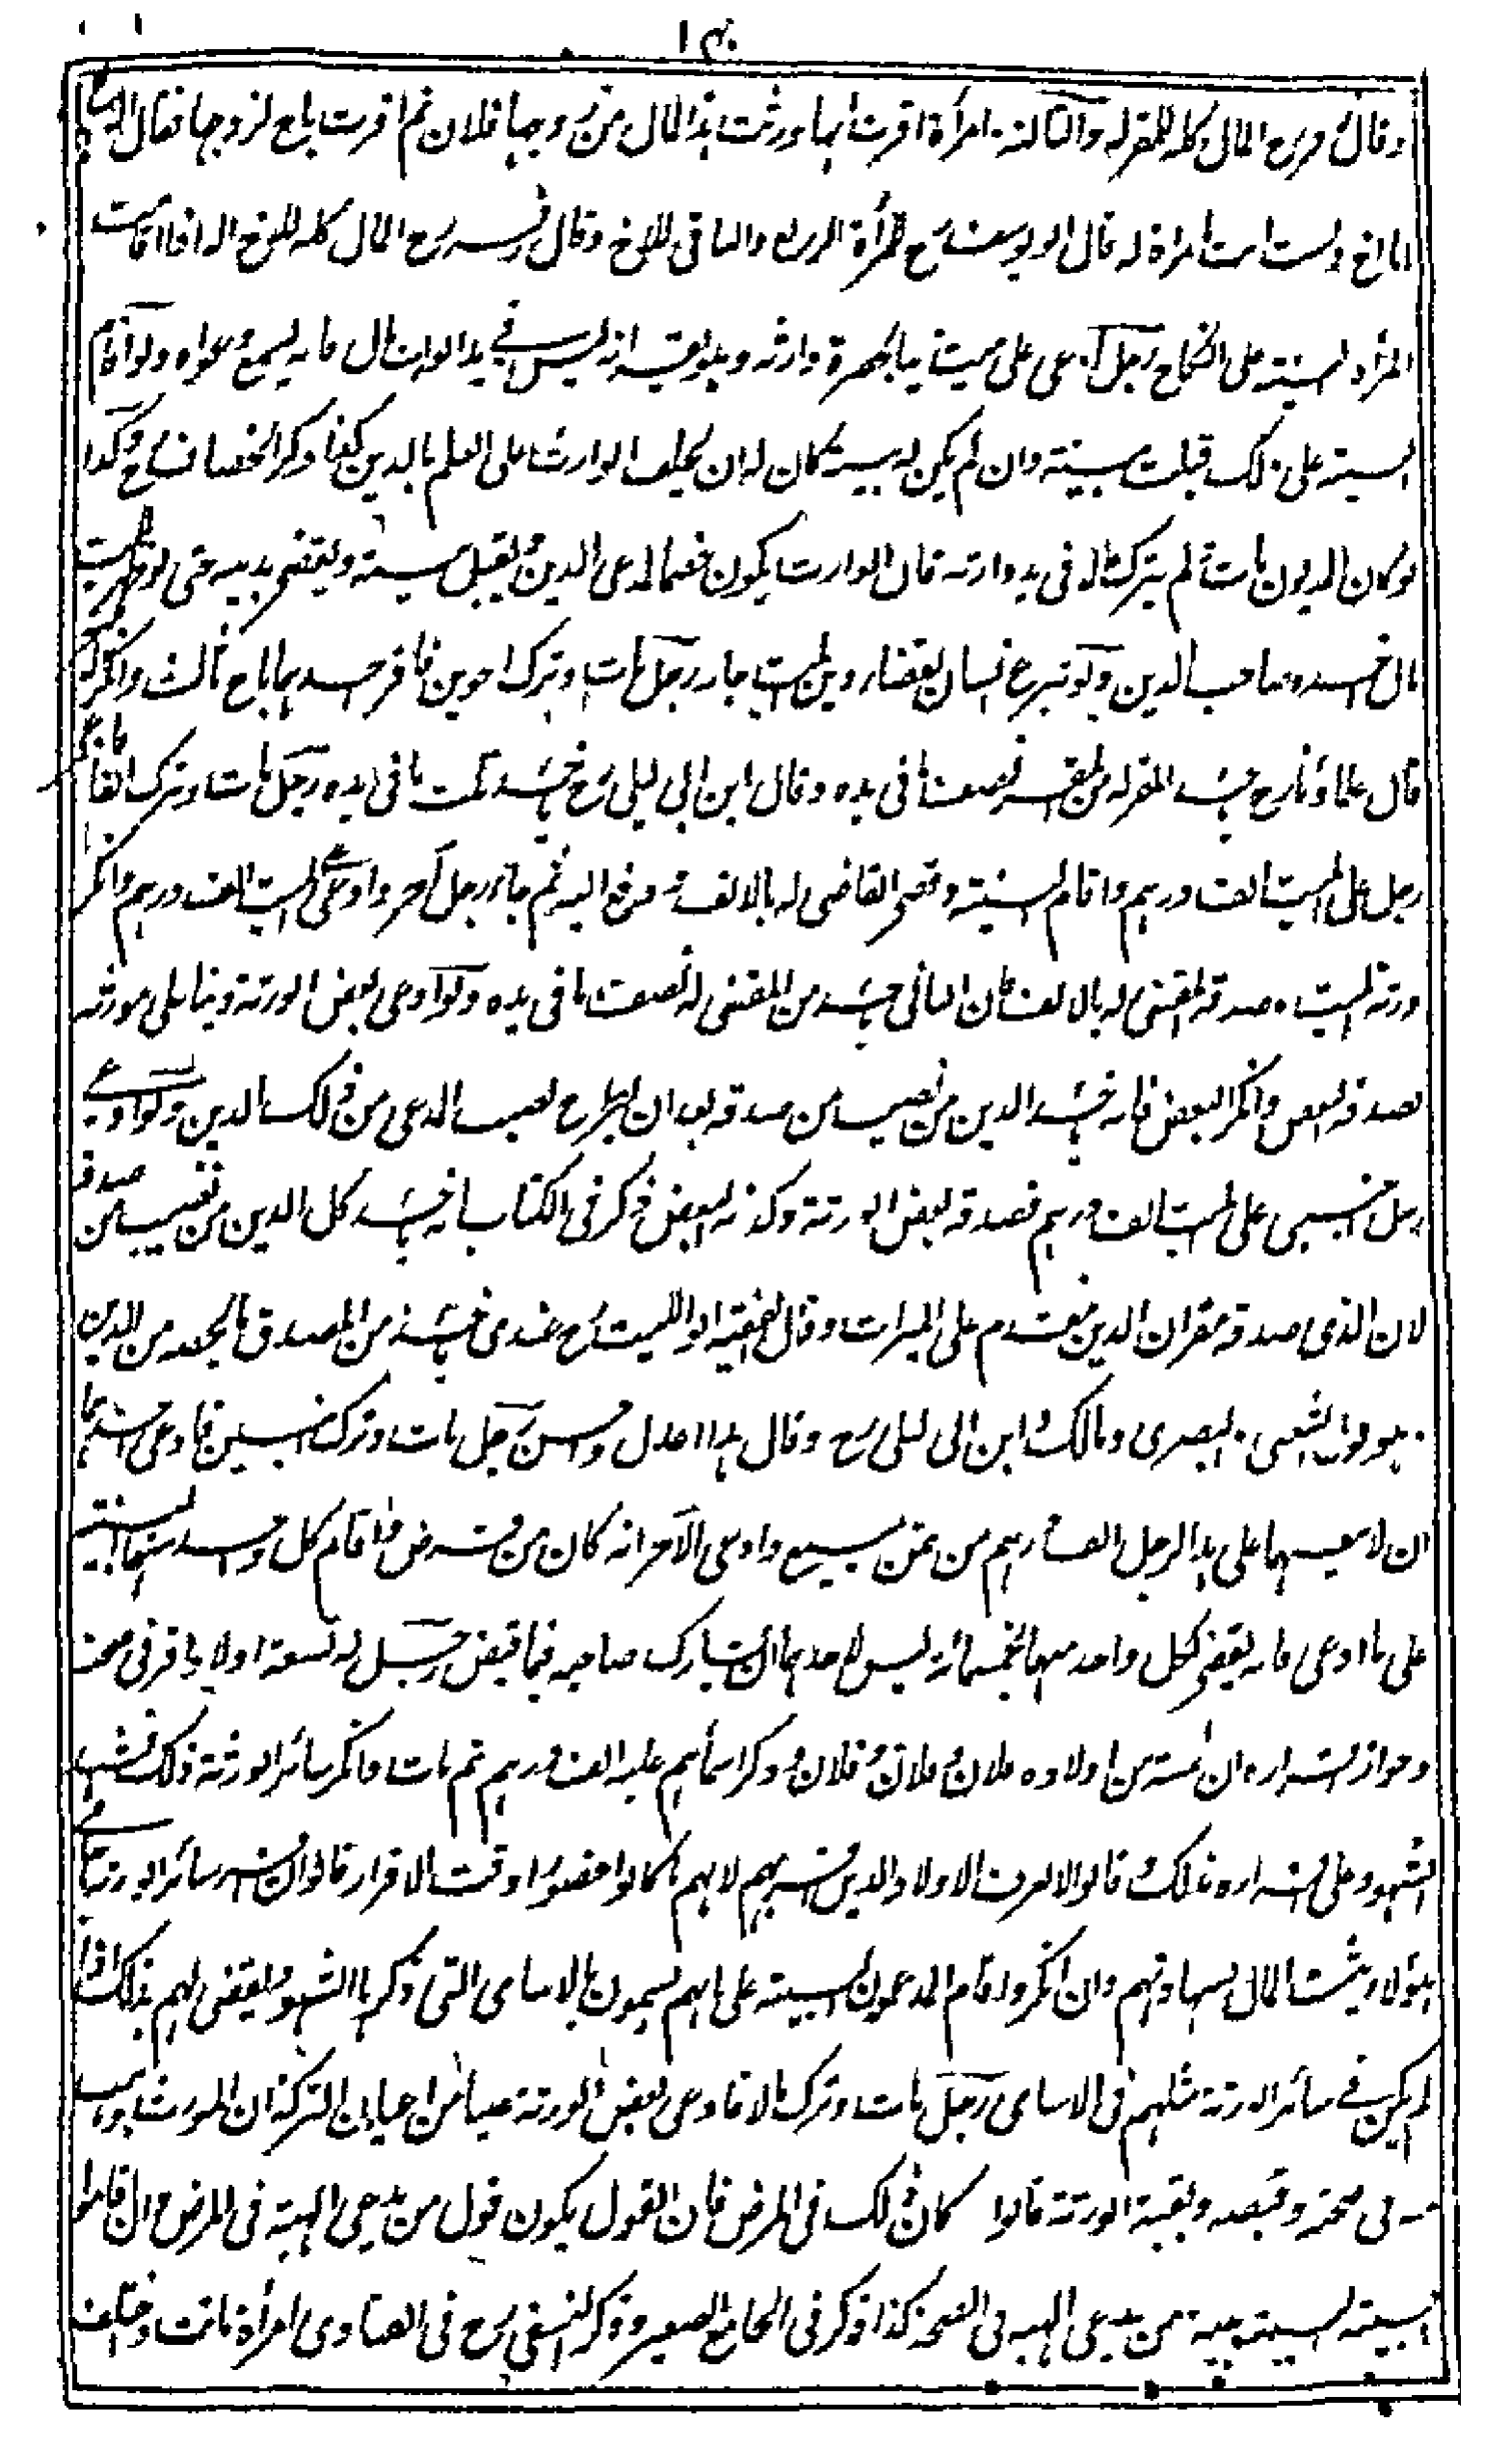 وقال زفر رح المال كله للمقر له والثالثة امرأة اقرت انها ورثت هذا المال من زوجها فلان ثم اقرت باخ لزوجها فقال الاخ
انا اخ ولست انت امرأة له قال ابو يوسف رح للمرأة الربع والباقي للاخ وقال زفر رح المال كله للاخ الا اذا اقامت
المرأة البينة على النكاح رجل ادعى على ميت دينا بحضرة وارثه وهو يقر انه ليس في يد الوارث مال فانه يسمع دعواه ولو اقام
البينة على ذلك قبلت بينته وان لم يكن له بينة كان له ان يحلف الوارث على العلم بالدين كذا ذكر الخصاف رح وكذا
لو كان المديون مات ولم يترك مالا في يد وارثه فان الوارث يكون خصما لمدعي الدين ويقبل بينته ويقضى بدينه حتى لو ظهر للميت
مال اخذه صاحب الدين ولو تبرع انسان بقضاء دين الميت جاز رجل مات وترك اخوين فاقر احدهما باخ ثالث وانكر الآخر
قال علماؤنا رح يأخذ المقر له من المقر نصف ما في يده وقال ابن ابي ليلى رح يأخذ ثلث ما في يده رجل مات وترك الفا فادعى
رجل على الميت الف درهم واقام البينة وقضى القاضي له بالالف ودفع اليه ثم جاء رجل آخر وادعى على الميت الف درهم وانكر
ورثة الميت وصدقه المقضي له بالالف فان الثاني يأخذ من المقضي له نصف ما في يده ولو ادعى بعض الورثة دينا على مورثه
فصدقه البعض وانكر البعض فانه يأخذ الدين من نصيب من صدقه بعد ان يطرح نصيب المدعي من ذلك الدين ولو ادعى
رجل اجنبي على الميت الف درهم فصدقه بعض الورثة وكذبه البعض ذكر في الكتاب انه يأخذ كل الدين من نصيب من صدقه
لان الذي صدقه مقر ان الدين مقدم على الميراث وقال الفقيه ابو الليث رح عندي يأخذ من المصدق ما يخصه من الدين
وهو قول الشعبي والبصري ومالك وابن ابي ليلى رح وقال هذا اعدل واحسن رجل مات وترك ابنين فادعى احدهما
ان لابيهما على هذا الرجل الف درهم من ثمن مبيع وادعى الآخر انه كان من قرض واقام كل واحد منهما البينة
على ما ادعى فانه يقضى لكل واحد منهما بخمسمائة وليس لاحدهما ان يشارك صاحبه فيما قبض رجل له تسعة اولاد اقر في صحته
وجواز اقراره ان لخمسة من اولاده فلان وفلان وفلان وذكر اسمائهم عليه الف درهم ثم مات وانكر سائر الورثة ذلك فشهد
الشهود على اقراره بذلك وقالوا لا نعرف الاولاد الذين اقر بهم لانهم ما كانوا حضورا وقت الاقرار قالوا ان اقر سائر الورثة باسامي
هؤلاء يثبت المال بشهادتهم وان انكروا فاقام المدعون البينة على انهم يسمون بالاسامي التي ذكرها الشهود يقضى لهم بذلك اذا
لم يكن في سائر الورثة مثلهم في الاسامي رجل مات وترك مالا فادعى بعض الورثة عينا من اعيان التركة ان المورث وهب
له في صحته وقبضه وبقية الورثة قالوا كان ذلك في المرض فان القول يكون قول من يدعي الهبة في المرض وان اقاموا
البينة فالبينة بينة من يدعي الهبة في الصحة كذا ذكر في الجامع الصغير وذكر النسفي رح في الفتاوى امرأة ماتت واختلف